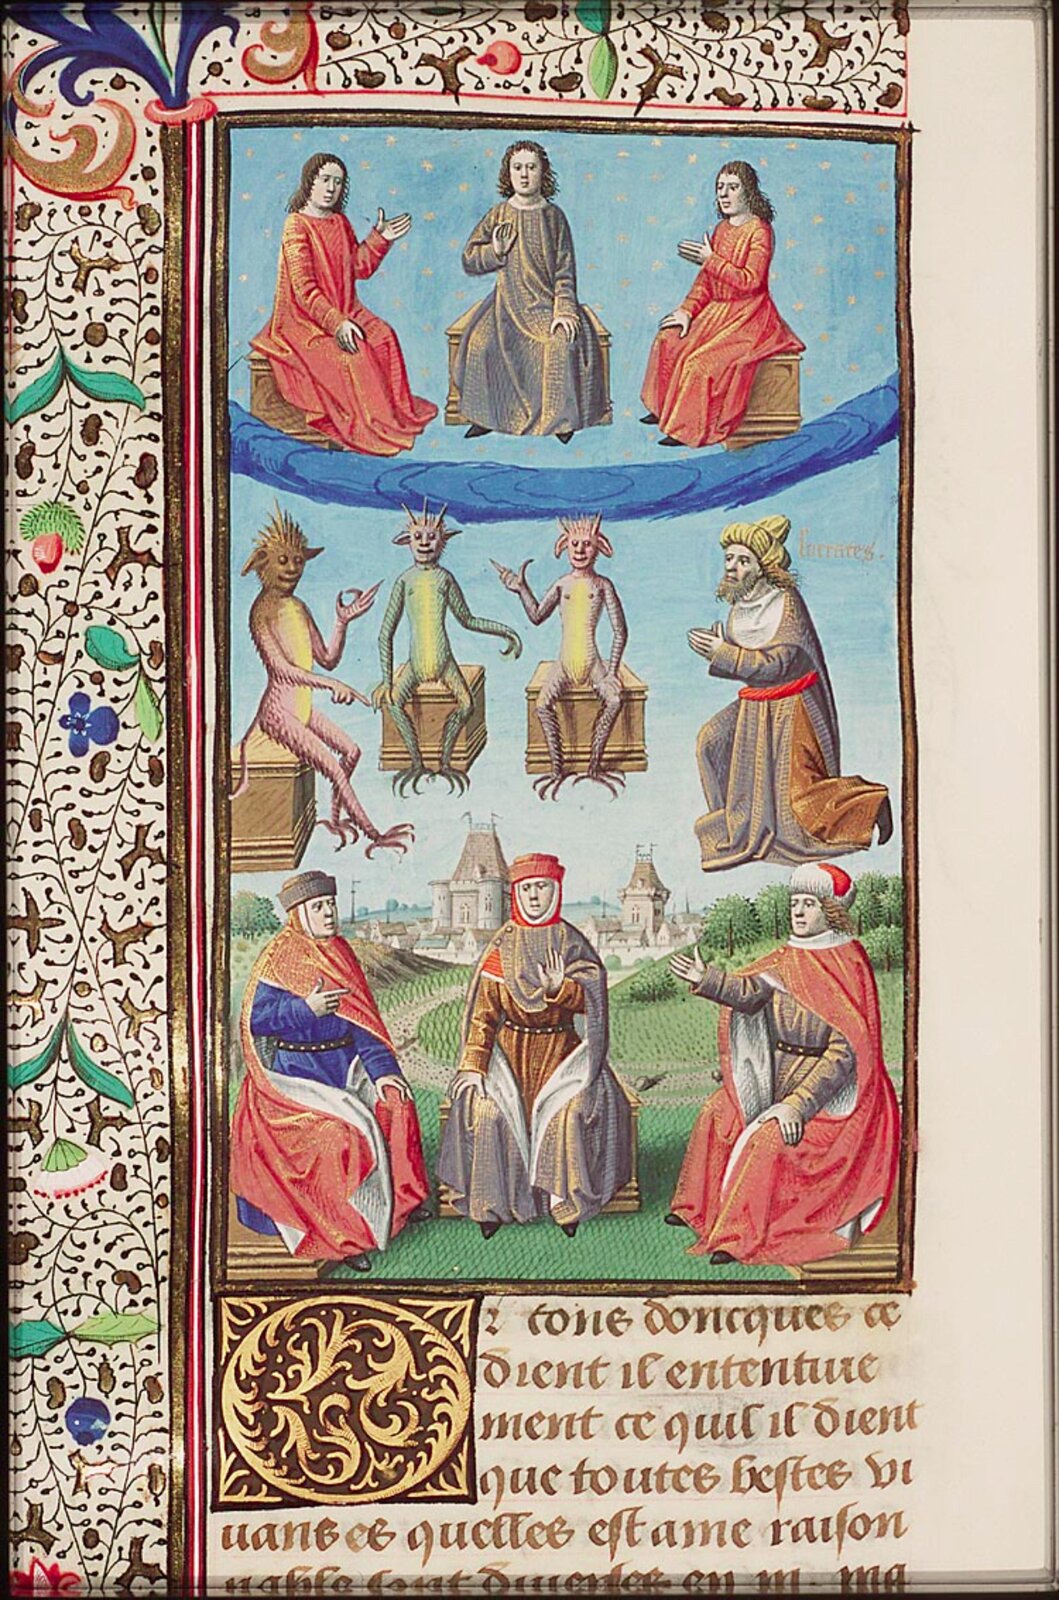 Socrates.
Or tous doncques ce
dient il ententiue
ment ce quil il dient
que toutes bestes vi
uans es quelles est ame raison
nable sont diuisees en